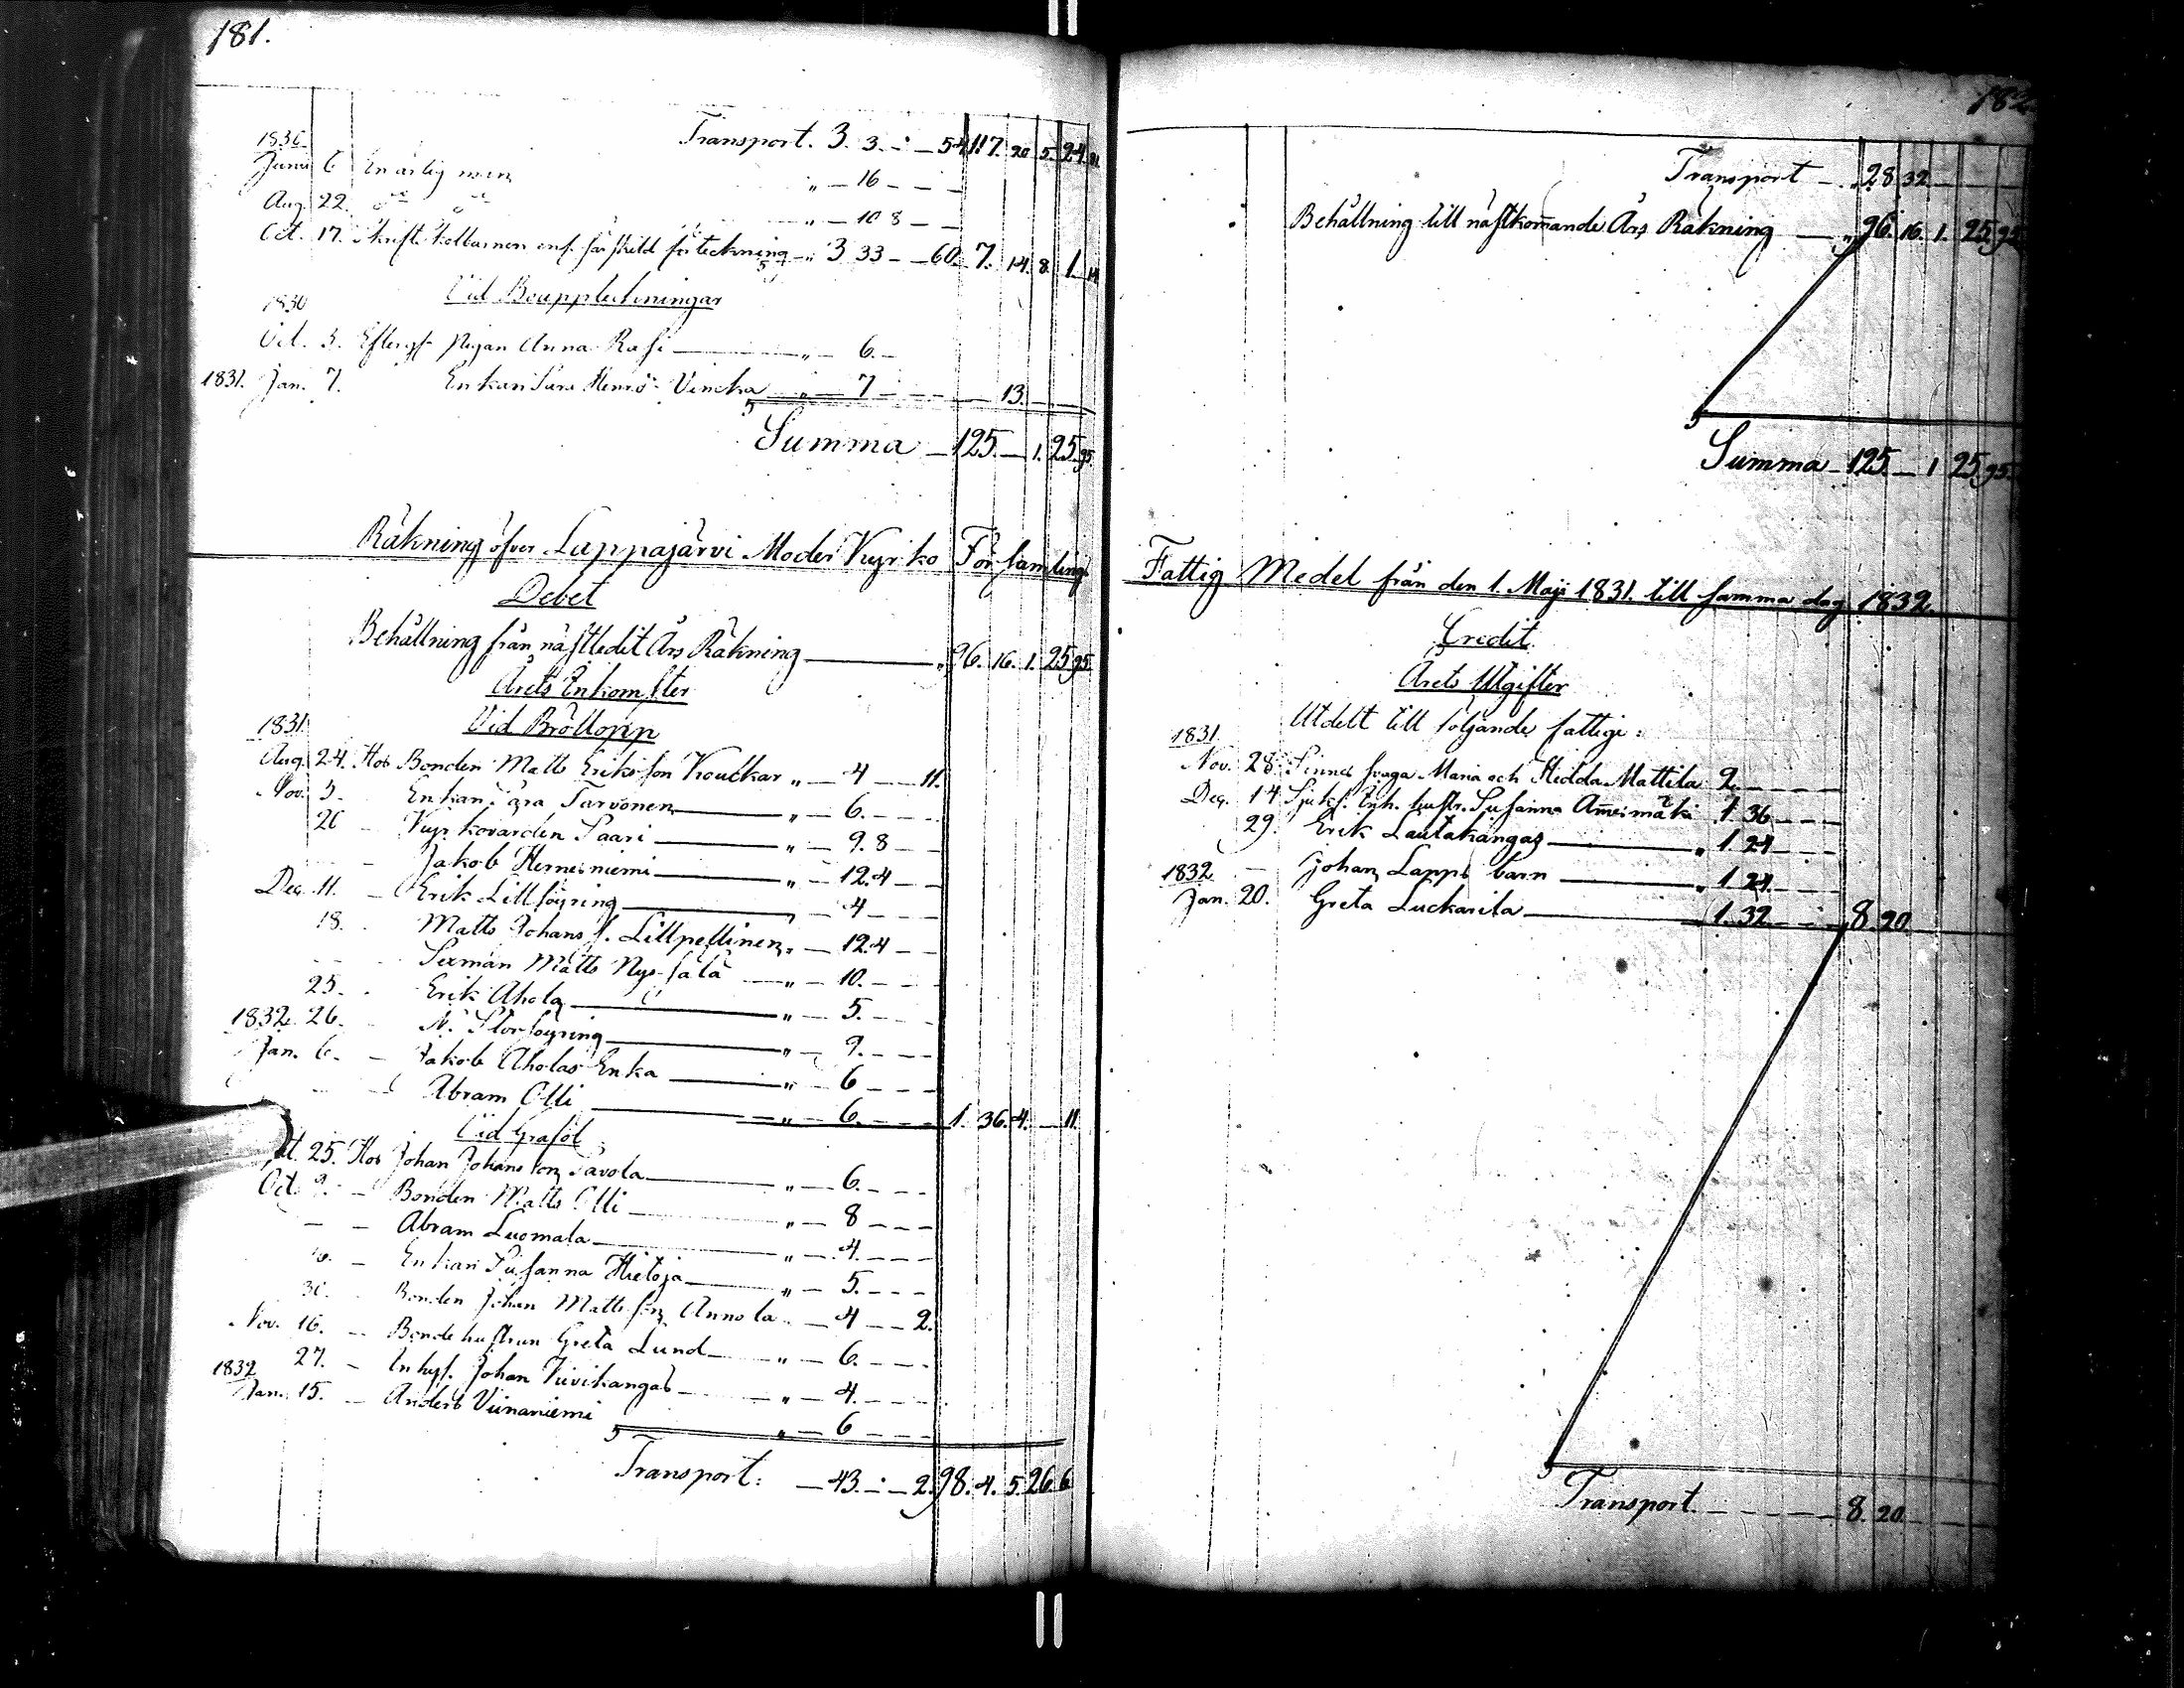 181.
Transport. 3. 3. - — 54 117. 20 5. 24. 81.
1830
Junii 6 En ärlig man „ — 16 - — —
Aug. 22. d:o d:o „ — 10 8 — —
Oct. 17. Skrifts kollarnen enl. särskild förteckning „ 3 33 — — 60. 7. 14. 8. 1. 14
Vid Bouppteckningar
1830
Oct. 3. Efter Pigan Anna Rasi — „ — 6. —
1831. Jan. 7. Enkan Sara — „ — 7 — — — 13. —
Summa — 125. — 1. 25. 95.
Räkning öfver Lappajärvi Moder Kyrko Församlings
Debet
Behållning från nästledit Års Räkning — „ 96. 16. 1. 25 95.
Årets Inkomster
1831. Vid Bröllopp
Aug. 24. Hos Bonden Matts Eriksson Kouckar „ — 4 — — 11.
Nov. 3. Enkan Sara Tarvonen — „ — 6. — — —
26 — Kyrkovärden Saari — „ — 9. 8 — —
— — Jakob Hernesniemi — „ — 12. 4 — —
Dec. 11. — Erik Lillsöyring — „ — 4 — — —
18. Matts Johans s. Lillpellinen „ — 12. 4 — —
— — Sexman Matts — „ — 10. — — —
25. Erik Ahola — „ — 5. — — —
26. N. Storsöyring — „ — 9. — — —
1832.
Jan. 6. — Jakob Aholas Enka — „ — 6 — — —
— — Abram Olli — „ — 6. — — — 1. 36. 4. — 11.
Vid Graföl
25. Hos Johan Johansson Savola — „ — 6. — — —
Oct. 9. — Bonden Matts Olli — „ — 8 — — —
— — Abram Luomala — „ — 4. — — —
— Enkan Susanna Hietoja — „ — 5. — — —
30. Bonden Johan Mattsson Annola „ — 4 — — 2.
Nov. 16. — Bondehustrun Greta Lund — „ — 6. — — —
27. — Inhys. Johan Kivikangas — „ — 4. — — —
1832
Jan. 15. — Anders Viinaniemi „ — 6 — — —
Transport: — 43. - — 2. 98. 4. 5. 26. 6
182
Transport — „ 28 32 —
Behållning till nästkom̄ande Års Räkning — „ 96. 16. 1. 25. 95
Summa — 125. — 1 25 95.
Fattig Medel från den 1. Maji 1831. till samma dag 1832.
Credit
Årets Utgifter
Utdelt till följande fattige:
1831.
Nov. 28. Maria och Hedda Mattila 2. — — —
Dec. 14. Sjukl. Inh. hustr. Susanna Am̄esmäki 1 36 — — —
29. Erik Lautakangas — „ 1. 24 — —
— Johan Lapps barn — „ 1 24. — —
1832.
Jan. 20. Greta Luckarila — 1. 32. — — 8. 20.
Transport. — — — — 8. 20.